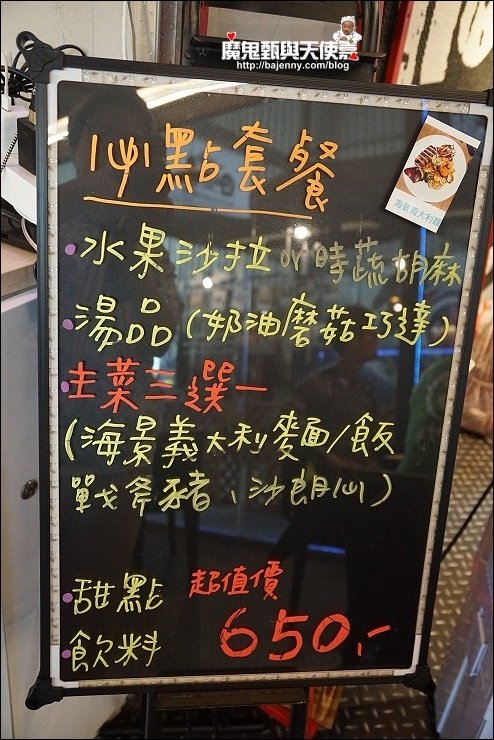 魔鬼甄與天使嘉
http://bajenny.com/blog
必點套餐
海景義大利麵
·水果沙拉 or 時蔬胡麻
·湯品(奶油磨菇巧達)
·主菜三選一
(海景義大利麵/飯
戰斧豬、沙朗仙)
·甜點 超值價
·飲料 650.-